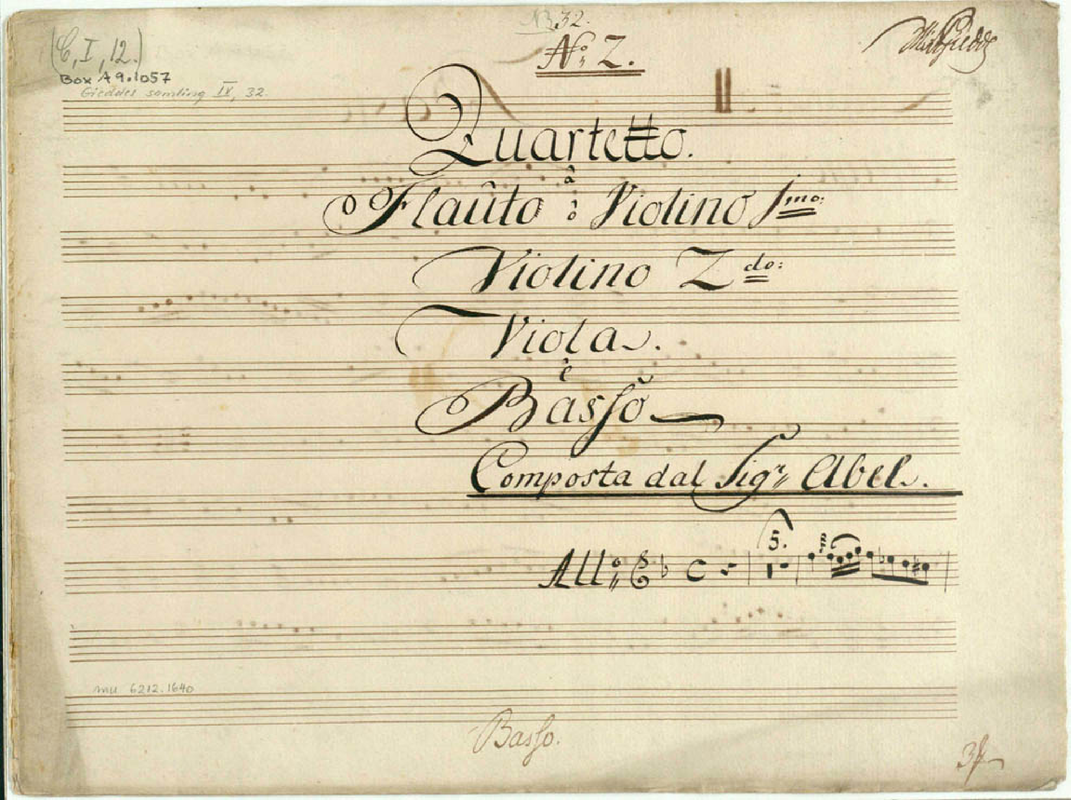 (C, I, 12.)
Box A 9.1057
Gieddes samling IX, 32.
32.
No: 2.
Quartetto.
â
Flaûto ò Violino Imo:
Violino 2do:
Viola.
è
Basso
Composta dal Sigr: Abel.
5.
All:o
mu 6212.1640
Basso.